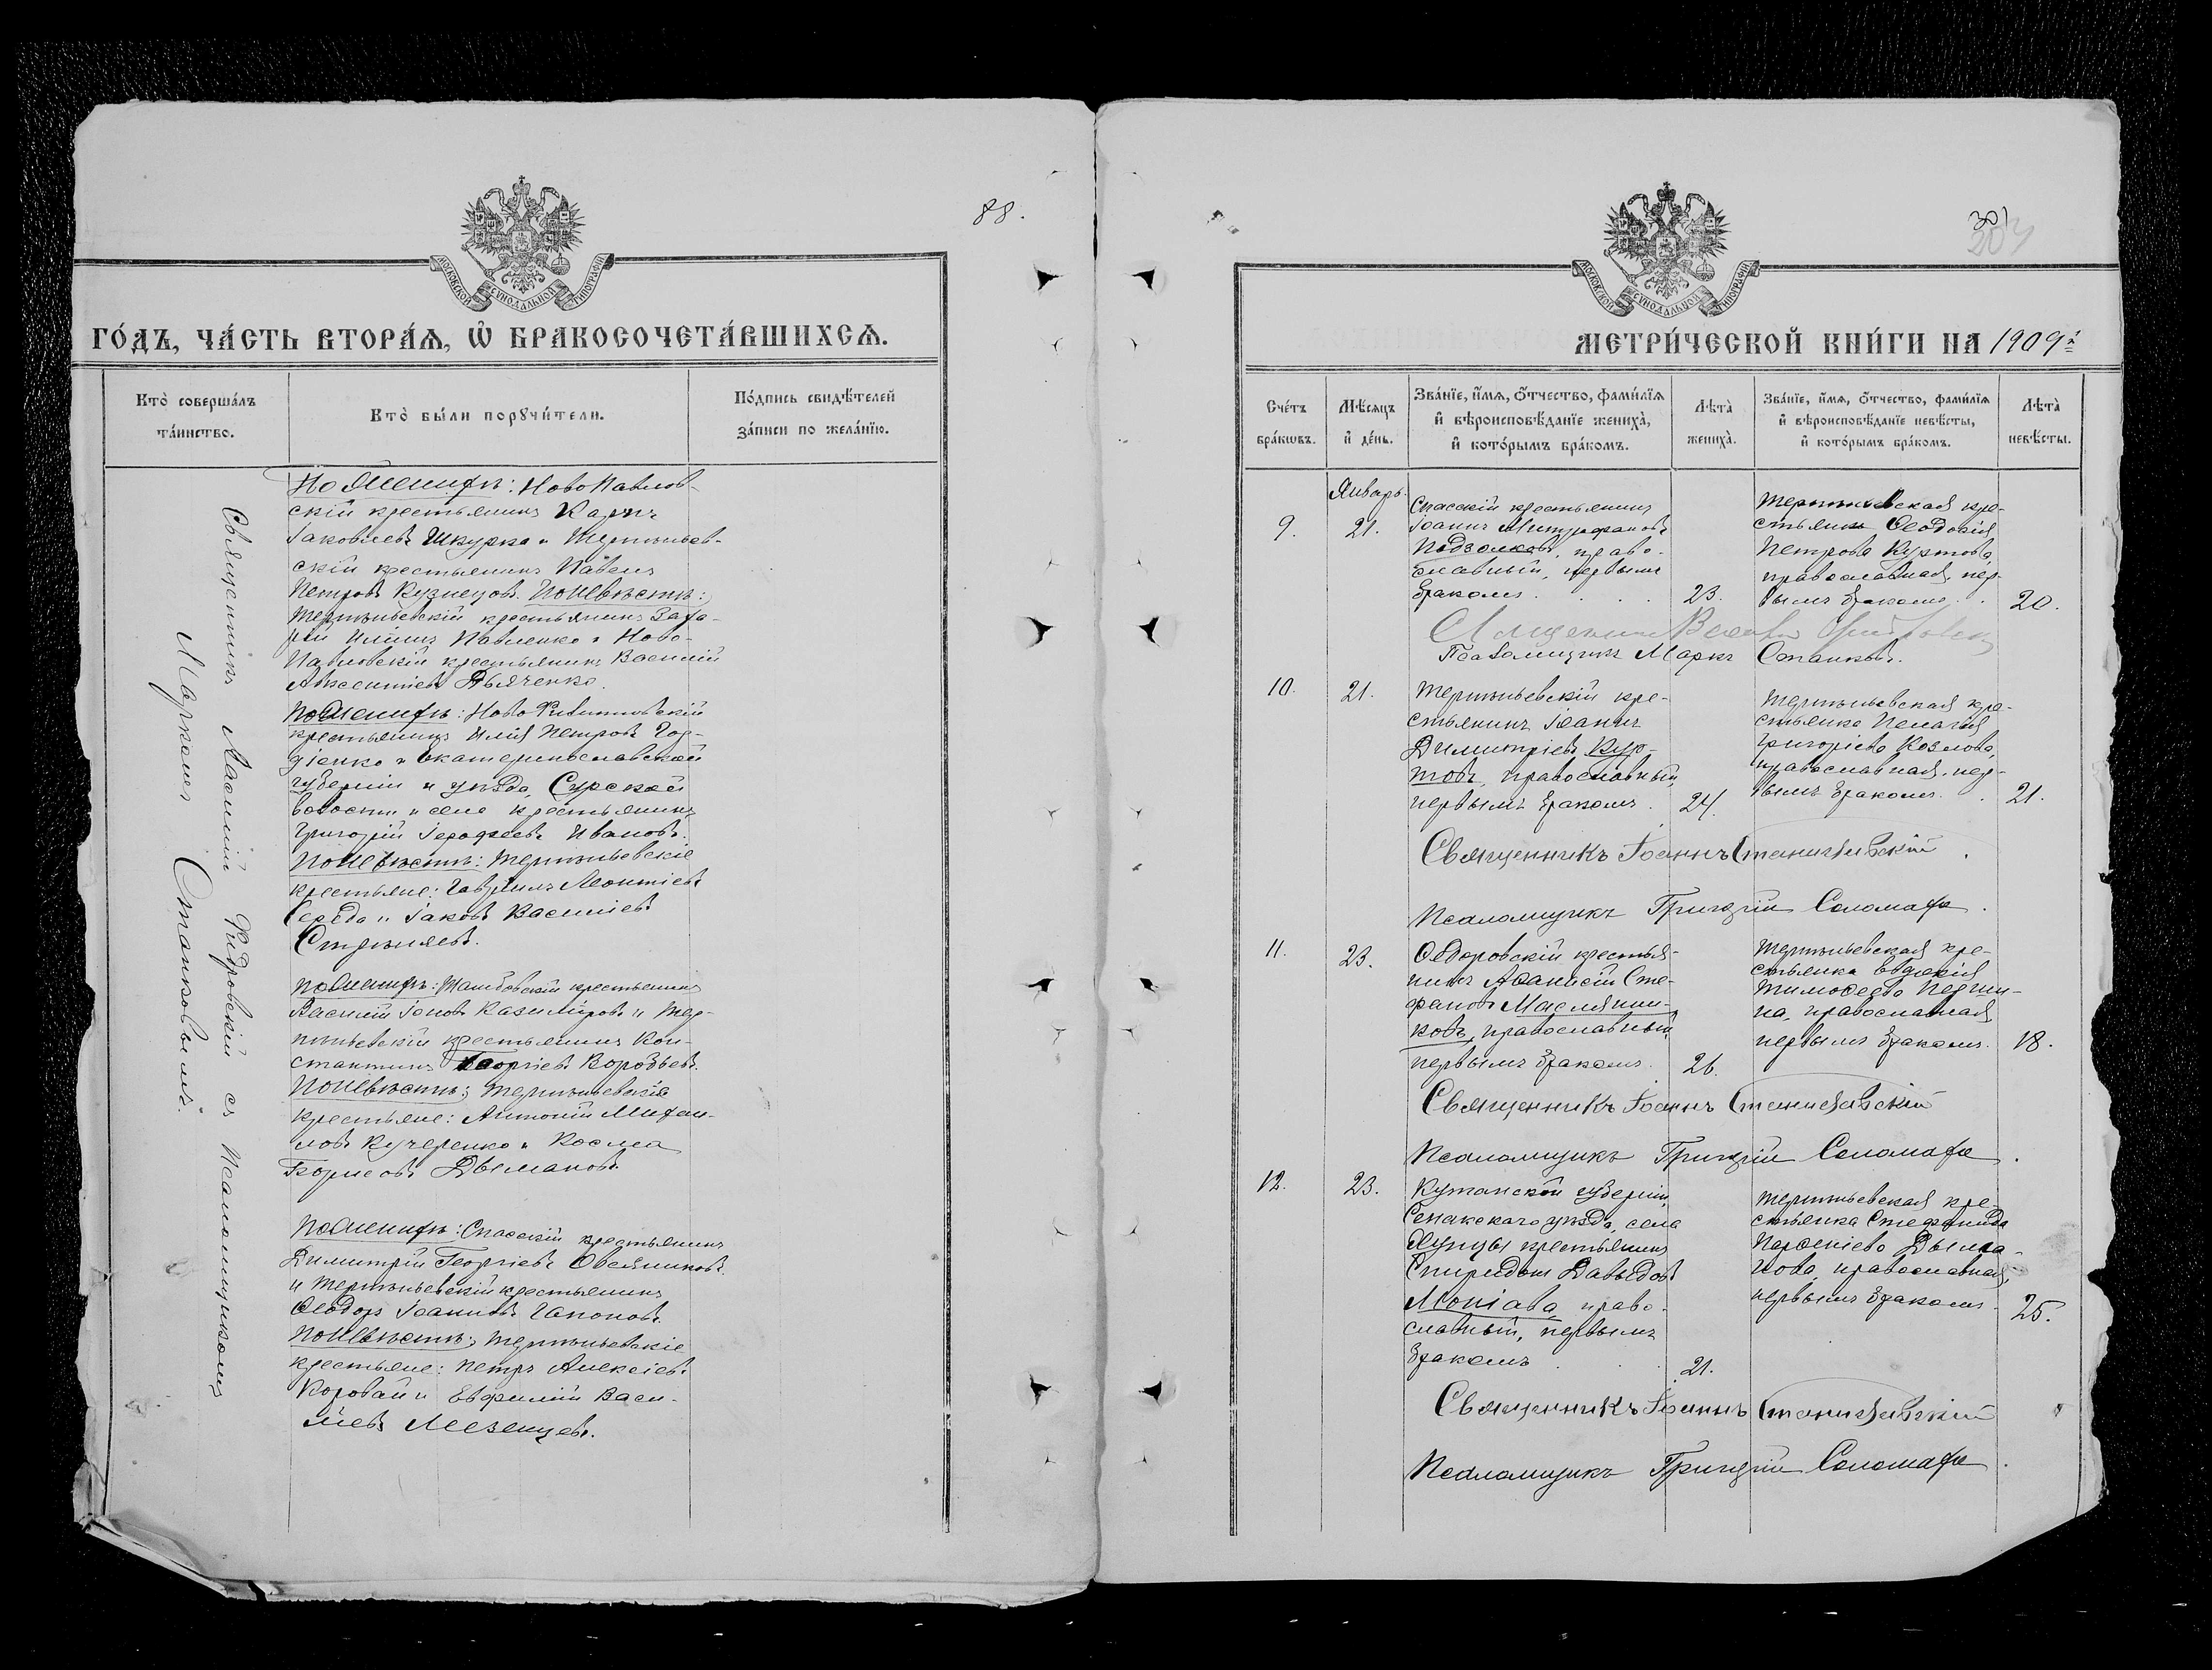 88.
МОСКОВСКОЙ СУНОДАЛЬНОЙ ТИПОГРАФІИ
ГО́ДЪ, ЧА́СТЬ ВТОРА́Ѧ, Ѽ БРАКОСОЧЕТА́ВШИХСѦ.
Кто̀ соверша́лъ
та́инство.
Кто̀ бы́ли порꙋчи́тели.
По́дпись свидѣ́телей
за́писи по жела́нїю.
Священникъ Василій Фидровскій съ Псаломщикомъ
Маркомъ Станковымъ.
По Женихѣ: НовоПавлов-
скій крестьянинъ Карпъ
Іаковлевъ Шкурка и Терпѣньев-
скій крестьянинъ Павелъ
Петровъ Кузнецовъ. По Невѣстѣ:
Терпѣньевскій крестьянинъ Заха-
рій Иліинъ Павленко и Ново-
Павловскій крестьянинъ Василій
Авксентіевъ Дьяченко.
По Женихѣ: Ново
крестьянинъ Илія Петровъ Гор-
діенко и Екатеринославской
губерніи и уѣзда, Сурской
волости и села крестьянинъ
Григорій Іерофеевъ Ивановъ.
По Невѣстѣ: Терпѣньевскіе
крестьяне: Гавріилъ Леонтіевъ
Середа и Іаковъ Василіевъ
По Женихѣ: крестьянинъ
Василій Іоновъ Казиміровъ и Тер-
пѣньевскій крестьянинъ Кон-
стантинъ Георгіевъ Воробьевъ.
По Невѣстѣ: Терпѣньевскіе
крестьяне: Антоній Михаи-
ловъ Кучеренко и Косма
Борисовъ Дымановъ.
По Женихѣ: Спасскій крестьянинъ
Димитрій Георгіевъ Овсянниковъ.
и Терпѣньевскій крестьянинъ
Ѳеодоръ Іоанновъ Гапоновъ.
По Невѣстѣ: Терпѣньевскіе
крестьяне: Петръ Алексіевъ
Коровай и Евфимій Васи-
ліевъ Мезенцевъ.
МОСКОВСКОЙ СУНОДАЛЬНОЙ ТИПОГРАФІИ
МЕТРИ́ЧЕСКОЙ КНИ́ГИ НА 1909й
Сче́тъ
бра́кѡвъ.
Мѣ́сяцъ
и҆ де́нь.
Зва́нїе, и҆́мѧ, ѻ҆́тчество, фами́лїѧ
и҆ вѣроисповѣ́данїе жениха̀,
и҆ кото́рымъ бра́комъ.
Лѣ́та
жениха̀.
Зва́нїе, и҆́мѧ, ѻ҆́тчество, фами́лїѧ
и҆ вѣроисповѣ́данїе невѣ́сты,
и҆ кото́рымъ бра́комъ.
Лѣ́та
невѣ́сты.
Январь.
9.
21.
Спасскій крестьянинъ
Іоаннъ Митрофановъ
Подзолковъ, право-
славный, первымъ
бракомъ.
23.
Терпѣньевская кре-
стьянка Ѳеодосія
Петрова Куртова,
православная, пер-
вымъ бракомъ.
20.
Псаломщикъ Маркъ Станковъ.
10.
21.
Терпѣньевскій кре-
стьянинъ Іоаннъ
Димитріевъ Кур-
товъ, православный,
первымъ бракомъ.
24.
Терпѣньевская кре-
стьянка Пелагія
Григоріева Козлова,
православная, пер-
вымъ бракомъ.
21.
Священникъ Іоаннъ Станиславскій.
Псаломщикъ Григорій Соломаха.
11.
23.
Ѳедоровскій крестья-
нинъ Аѳанасій Сте-
фановъ Маслянни-
ковъ, православный,
первымъ бракомъ.
26.
Терпѣньевская кре-
стьянка Евдокія
Тимоѳеева
на, православная,
первымъ бракомъ.
18.
Священникъ Іоаннъ Станиславскій
Псаломщикъ Григорій Соломаха.
12.
23.
Кутаиской губерніи,
Сенакскаго уѣзда, села
крестьянинъ
Спиридонъ Давыдовъ
право-
славный, первымъ
бракомъ
21.
Терпѣньевская кре-
стьянка Стефанида
Парѳеніева Дыма-
нова, православная,
первымъ бракомъ.
25.
Священникъ Іоаннъ Станиславскій
Псаломщикъ Григорій Соломаха.